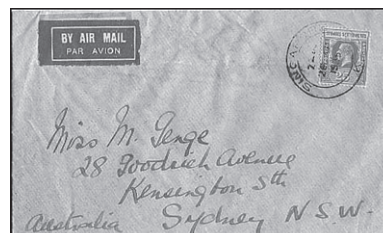 BY AIR MAIL
PAR AVION
Miss M.
28 Goodrich Avenue
Kensington Sth
Australia Sydney N S.W.